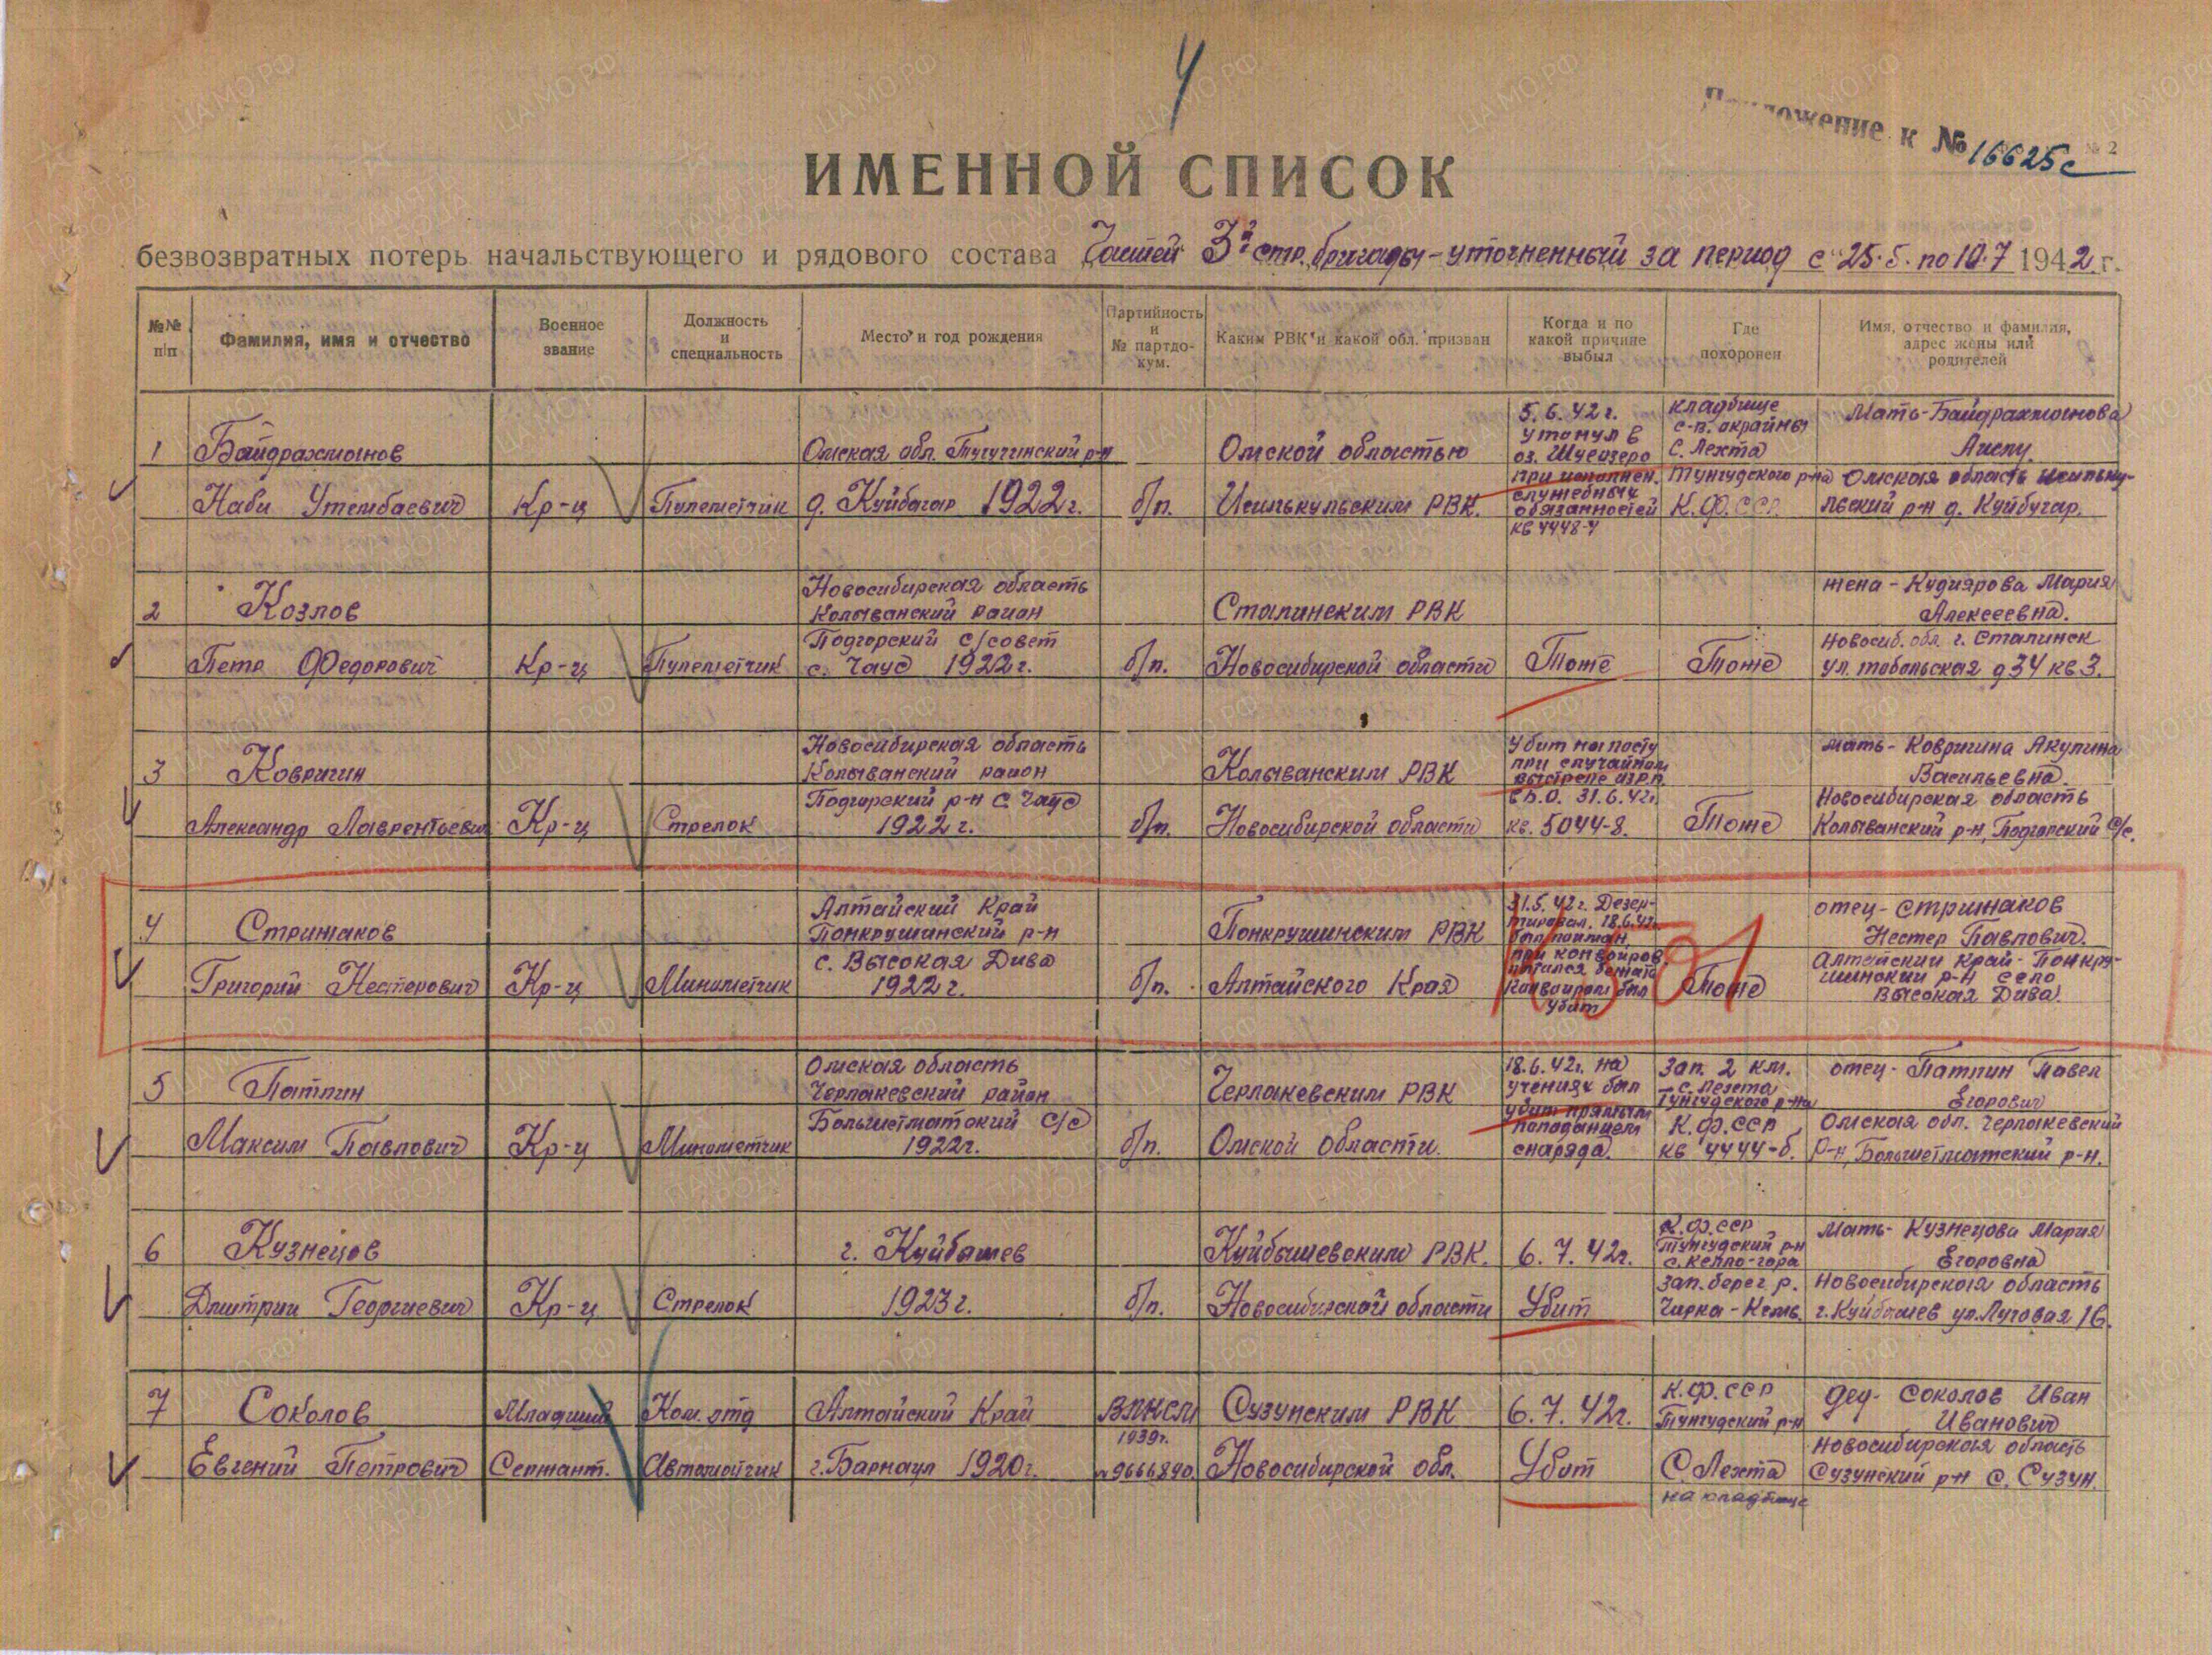 4
Приложение к № 16625с
№ 2
ИМЕННОЙ СПИСОК
безвозвратных потерь начальствующего и рядового состава Частей 3й стр. бригады - уточненный за период с 25.5. по 10.7 1942 г.
№№ п/п
Фамилия, имя и отчество
Военное звание
Должность и специальность
Место и год рождения
Партийность и № партдокум.
Каким РВК и какой обл. призван
Когда и по какой причине выбыл
Где похоронен
Имя, отчество и фамилия, адрес жены или родителей
1
Байдрахманов
Наби Утембаевич
Кр-ц
Пулеметчик
Омская обл. р-н
д. Куйбагар 1922 г.
б/п.
Омской областью
Исилькульским РВК.
5.6.42 г.
утонул в
оз. Шуеозеро
при исполнен.
служебных
обязанностей
кв 4448-4
кладбище
с-в. окрайны
С. Лехта
Тунгудского р-на
К.Ф.ССР
Мать - Байдрахманова
Омская область Исильку-
льский р-н д. Куйбугар.
2
Козлов
Петр Федорович
Кр-ц
Пулеметчик
Новосибирская область
Колыванский район
Подгорский с/совет
с. Чаус 1922 г.
б/п.
Сталинским РВК
Новосибирской области
Тоже
Тоже
жена - Кудиярова Мария
Алексеевна.
Новосиб. обл. г. Сталинск
ул. тобольская д 34 кв 3.
3
Ковригин
Александр Лаврентьевич
Кр-ц
Стрелок
Новосибирская область
Колыванский район
Подгорский р-н с. Чаус
1922 г.
б/п.
Колыванским РВК
Новосибирской области
Убит на посту
при случайном
выстреле из Р.П.
31.6.42г.
кв. 5044-8.
Тоже
мать - Ковригина Акулина
Васильевна.
Новосибирская область
Колыванский р-н, Подгорский с/с.
4
Стрижаков
Григорий Нестерович
Кр-ц
Минометчик
Алтайский Край
Понкрушинский р-н
с. Высокая Дива
1922 г.
б/п.
Понкрушинским РВК
Алтайского Края
31.5.42 г. Дезер-
тировал. 18.6.42г.
был пойман,
при конвоиров.
пытался бежать
конвоиром был
убит
Тоже
отец - Стрижаков
Нестер Павлович.
Алтайский край - Понкру-
шинский р-н село
Высокая Дива.
5
Патлин
Максим Павлович
Кр-ц
Минометчик
Омская область
Черлакевский район
Большетматский С/С
1922г.
б/п.
Черлакевским РВК
Омской области.
18.6.42г. на
учениях был
убит прямым
попаданием
снаряда.
Зап. 2 км.
с. Лехта
Тунгудского р-на
К.Ф.ССР
кв 4444-б.
отец - Патлин Павел
Егорович
Омская обл. Черлакевский
р-н, Большетматский р-н.
6
Кузнецов
Дмитрий Георгиевич
Кр-ц
Стрелок
г. Куйбышев
1923 г.
б/п.
Куйбышевским РВК.
Новосибирской области
6.7.42г.
Убит
К.Ф.ССР
Тунгудский р-н
с. Келло-гора
Зап. берег р.
Чирка-Кемь.
Мать - Кузнецова Мария
Егоровна
Новосибирская область
г. Куйбышев ул. Луговая 16.
7
Соколов
Евгений Петрович
Младший
Сержант.
Ком. отд
Автоматчик
Алтайский Край
г. Барнаул 1920г.
ВЛКСМ
1939г.
№9666890
Сузунским РВК
Новосибирской обл.
6.7.42г.
Убит
К.Ф.ССР
Тунгудский р-н
С. Лехта
на кладбище
дед - Соколов Иван
Иванович
Новосибирская область
Сузунский р-н С. Сузун.